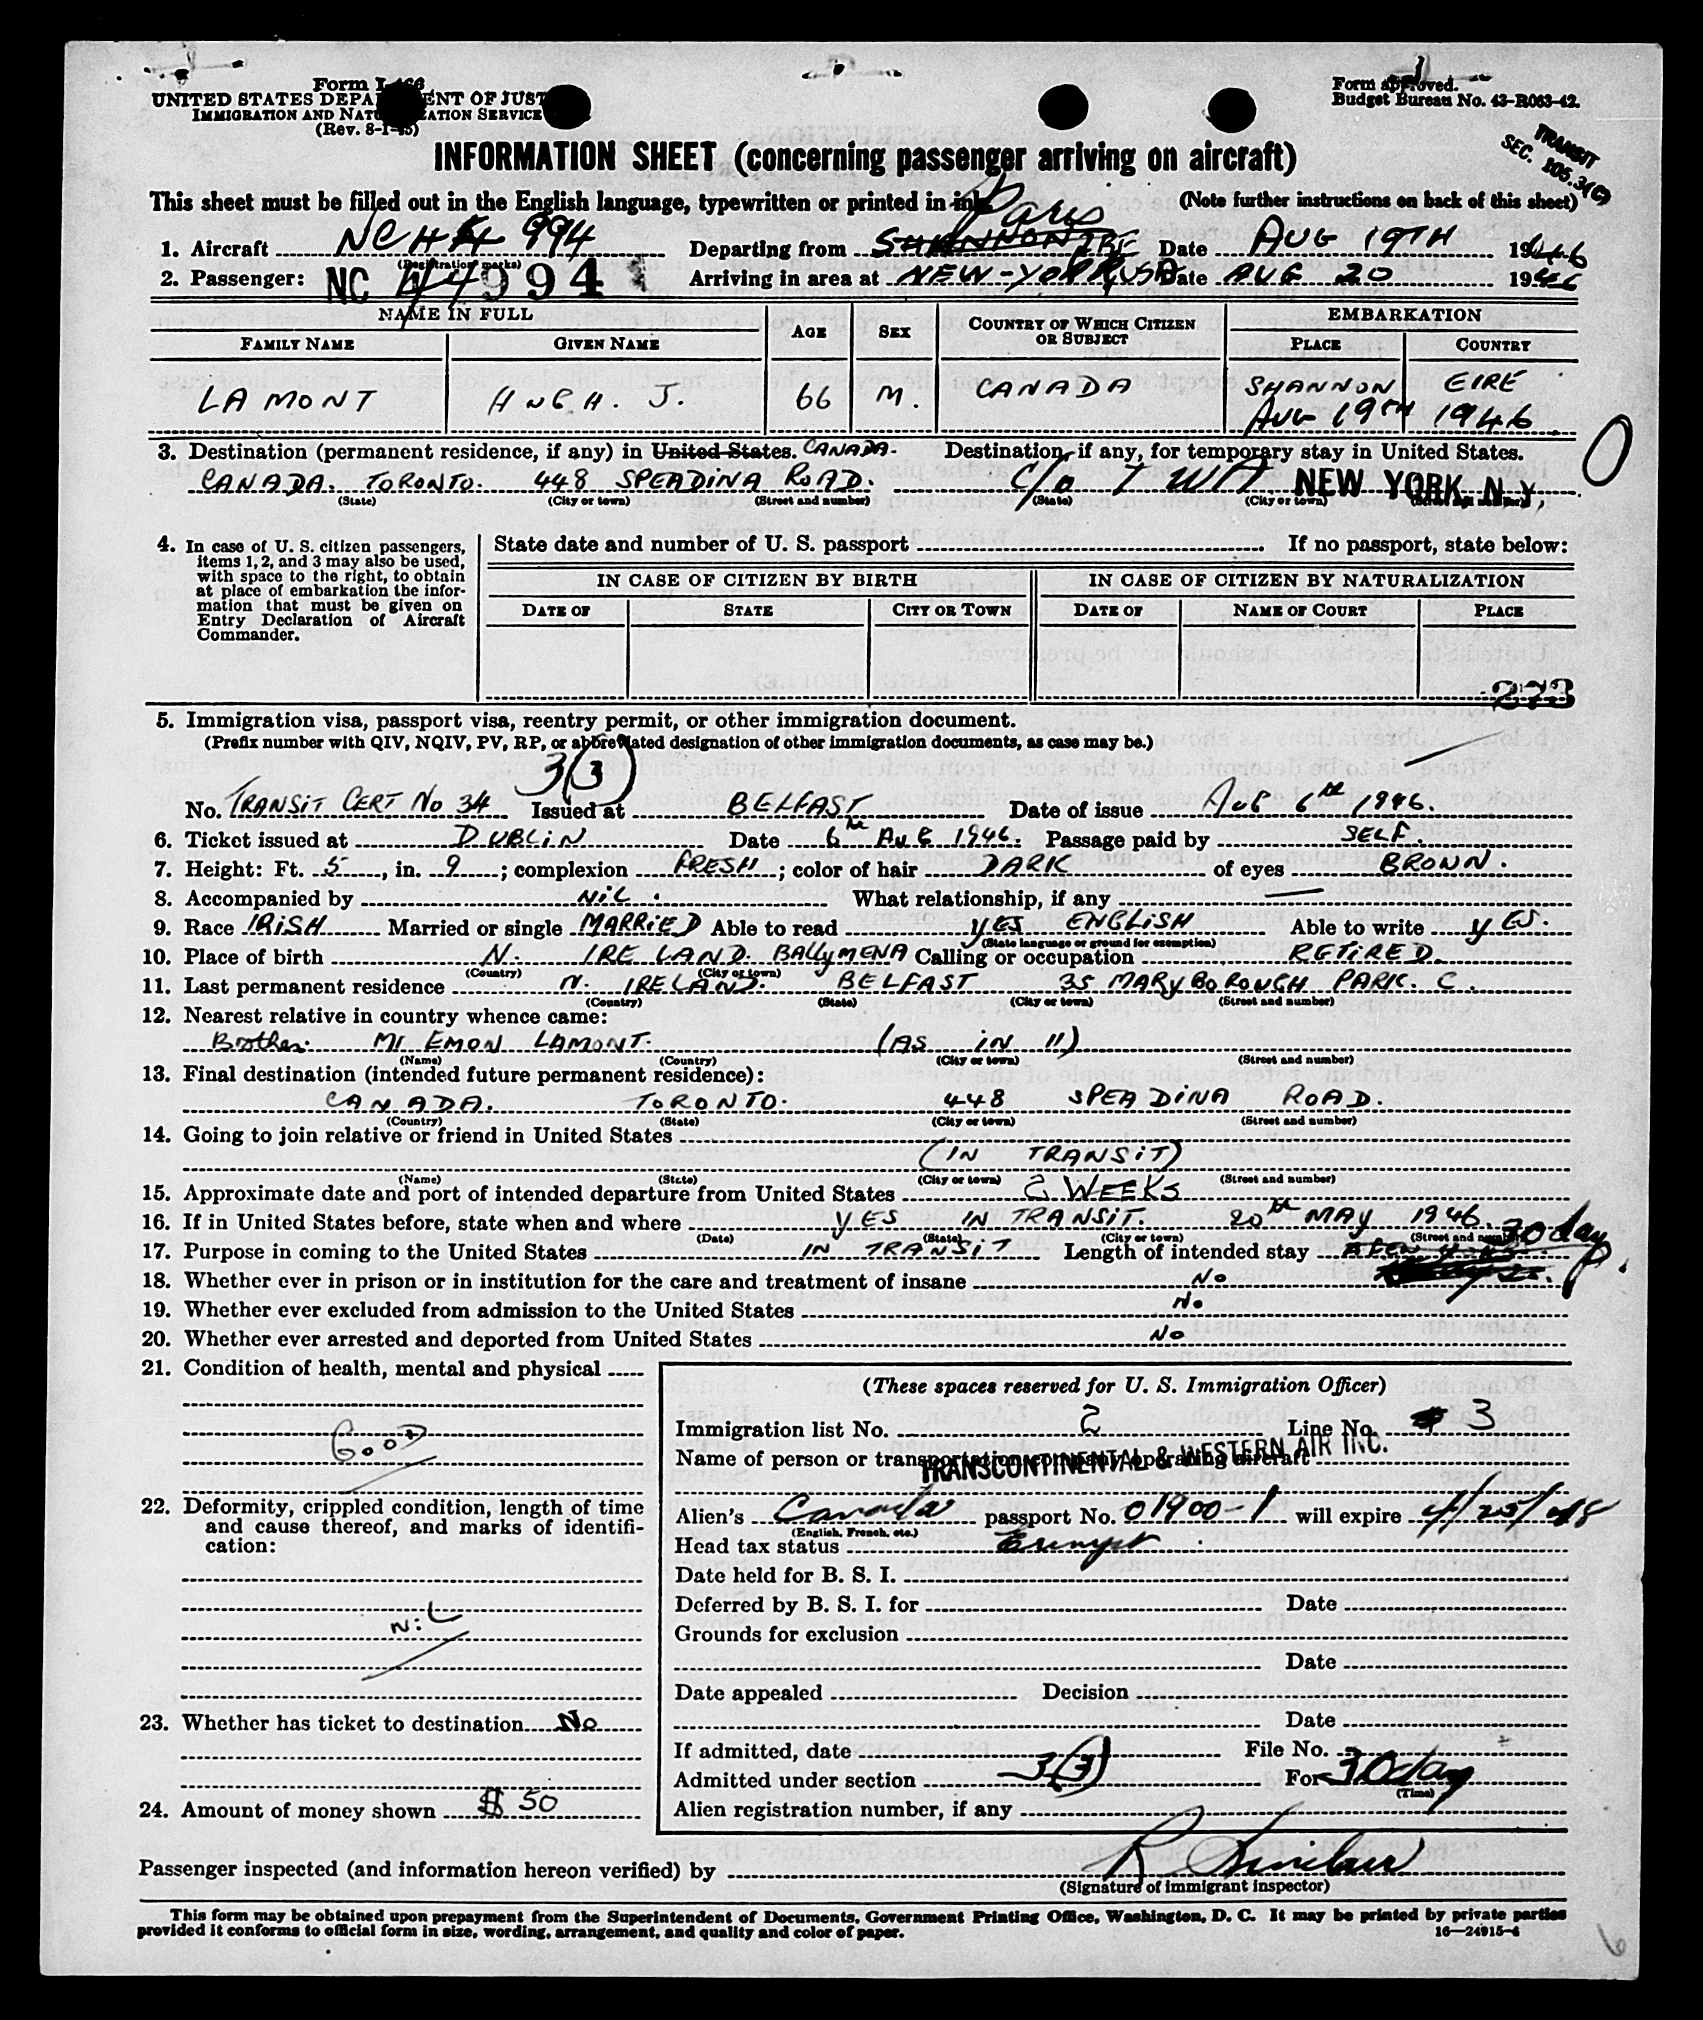 Form I-466
UNITED STATES DEPA ENT OF JUST
IMMIGRATION AND NATU ZATION SERVICE
(Rev. 8-1-45)
Form approved.
Budget Bureau No. 43-R063-42.
TRANSIT
SEC. 105.3(C)
INFORMATION SHEET (concerning passenger arriving on aircraft)
This sheet must be filled out in the English language, typewritten or printed in ink. (Note further instructions on back of this sheet)
Paris
1. Aircraft NC 44 994 Departing from SHANNON EIRE Date AUG 19TH 1946
(Registration marks)
2. Passenger: NC 44994 Arriving in area at NEW-YORK USA Date AUG 20 1946
NAME IN FULL AGE SEX COUNTRY OF WHICH CITIZEN OR SUBJECT EMBARKATION
FAMILY NAME GIVEN NAME PLACE COUNTRY
LAMONT HUGH. J. 66 M. CANADA SHANNON EIRE
AUG 19TH 1946
3. Destination (permanent residence, if any) in United States. CANADA. Destination, if any, for temporary stay in United States.
CANADA. TORONTO. 448 SPEADINA ROAD. c/o TWA NEW YORK, N.Y.
(State) (City or town) (Street and number) (State) (City or town) (Street and number)
4. In case of U. S. citizen passengers,
items 1, 2, and 3 may also be used,
with space to the right, to obtain
at place of embarkation the infor-
mation that must be given on
Entry Declaration of Aircraft
Commander.
State date and number of U. S. passport If no passport, state below:
IN CASE OF CITIZEN BY BIRTH IN CASE OF CITIZEN BY NATURALIZATION
DATE OF STATE CITY OR TOWN DATE OF NAME OF COURT PLACE
273
5. Immigration visa, passport visa, reentry permit, or other immigration document.
(Prefix number with QIV, NQIV, PV, RP, or abbreviated designation of other immigration documents, as case may be.)
3(3)
No. TRANSIT CERT NO 34 Issued at BELFAST Date of issue AUG 6th 1946.
6. Ticket issued at DUBLIN Date 6th AUG 1946. Passage paid by SELF.
7. Height: Ft. 5, in. 9; complexion FRESH; color of hair DARK of eyes BROWN.
8. Accompanied by NIL. What relationship, if any —
9. Race IRISH Married or single MARRIED Able to read YES ENGLISH Able to write YES.
(State language or ground for exemption)
10. Place of birth N. IRELAND. BALLYMENA Calling or occupation RETIRED.
(Country) (City or town)
11. Last permanent residence N. IRELAND. BELFAST 35 MARYBOROUGH PARK. C.
(Country) (State) (City or town) (Street and number)
12. Nearest relative in country whence came:
Brother. Mr EMON LAMONT. (AS IN 11)
(Name) (Country) (City or town) (Street and number)
13. Final destination (intended future permanent residence):
CANADA. TORONTO. 448 SPEADINA ROAD.
(Country) (State) (City or town) (Street and number)
14. Going to join relative or friend in United States
(IN TRANSIT)
(Name) (State) (City or town) (Street and number)
15. Approximate date and port of intended departure from United States 2 WEEKS
16. If in United States before, state when and where YES IN TRANSIT. 20th MAY 1946.
(Date) (State) (City or town) (Street and number)
17. Purpose in coming to the United States IN TRANSIT Length of intended stay 30 days
18. Whether ever in prison or in institution for the care and treatment of insane No
19. Whether ever excluded from admission to the United States No
20. Whether ever arrested and deported from United States No
21. Condition of health, mental and physical
GOOD
22. Deformity, crippled condition, length of time
and cause thereof, and marks of identifi-
cation:
NIL
23. Whether has ticket to destination No
24. Amount of money shown $ 50
(These spaces reserved for U. S. Immigration Officer)
Immigration list No. 2 Line No. 3
Name of person or transportation company operating aircraft
TRANSCONTINENTAL & WESTERN AIR INC.
Alien's Canada passport No. 01900-1 will expire 4/25/48
(English, French, etc.)
Head tax status Exempt
Date held for B. S. I.
Deferred by B. S. I. for Date
Grounds for exclusion
Date
Date appealed Decision
Date
If admitted, date File No.
Admitted under section 3(3) For 30 days
(Time)
Alien registration number, if any
Passenger inspected (and information hereon verified) by R Sinclair
(Signature of immigrant inspector)
This form may be obtained upon prepayment from the Superintendent of Documents, Government Printing Office, Washington, D. C. It may be printed by private parties
provided it conforms to official form in size, wording, arrangement, and quality and color of paper. 16—24915-4
6